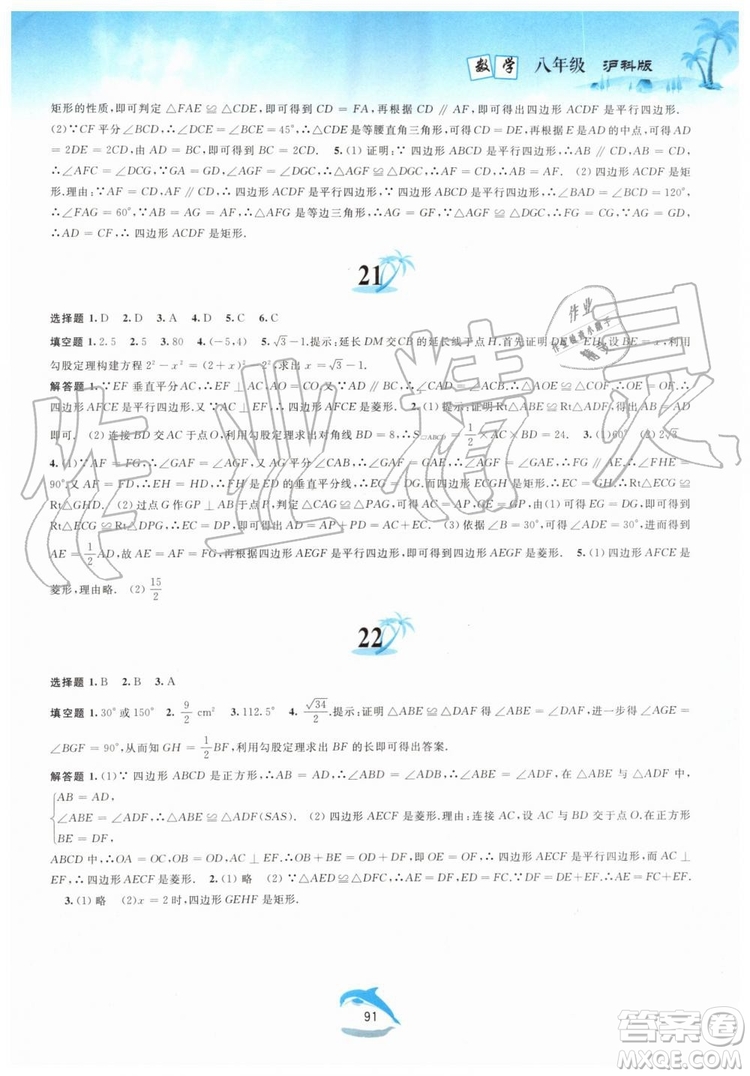 数学 八年级 沪科版
矩形的性质,即可判定 △FAE ≌ △CDE,即可得到 CD = FA,再根据 CD ∥ AF,即可得出四边形 ACDF 是平行四边形.
(2)∵ CF 平分 ∠BCD,∴ ∠DCE = 45°,∵ ∠CDE = 90°,∴ △CDE 是等腰直角三角形,∴ CD = DE,∵ E 是 AD 的中点,∴ AD
= 2DE = 2CD,由 AD = BC,即可得到 BC = 2CD. 5.(1)证明:∵ 四边形 ABCD 是平行四边形,∴ AB ∥ CD,AB = CD,
∴ ∠AFC = ∠DCG,∵ GA = GD,∠AGF = ∠CGD,∴ △AGF ≌ △DGC,∴ AF = CD,∴ AB = AF. (2)四边形 ACDF 是矩
形.理由:∵ AF = CD,AF ∥ CD,∴ 四边形 ACDF 是平行四边形,∵ 四边形 ABCD 是平行四边形,∴ ∠BAD = ∠BCD = 120°,
∴ ∠FAG = 60°,∵ AB = AG = AF,∴ △AFG 是等边三角形,∴ AG = GF,∵ △AGF ≌ △DGC,∴ FG = CG,∵ AG = GD,
∴ AD = CF,∴ 四边形 ACDF 是矩形.
21
选择题 1. D 2. D 3. A 4. D 5. C 6. C
填空题 1. 2.5 2. 5 3. 80 4. (−5,4) 5. √3 − 1.提示:延长 DM 交 CB 的延长线于点 H,首先证明 DE = EH,设 BE = x,利用
勾股定理构建方程 2² − x² = (2 + x)² − 2²,求出 x = √3 − 1.
解答题 1. ∵ EF 垂直平分 AC,∴ EF ⊥ AC,AO = CO,
四边形 AFCE 是平行四边形.又∵ AC ⊥ EF,∴ 四边形 AFCE 是菱形. 2.(1)提示:证明 Rt△ADE ≌ Rt△CDF,得到 AD = CD
即可. (2)连接 BD 交 AC 于点 O,利用勾股定理求出对角线 BD = 8,S□ABCD = 1/2 × AC × BD = 24. 3.(1)60° (2)2√3
4.(1)∵ AF = FG,∴ ∠FAG = ∠FGA,∵ AG 平分 ∠CAB,∴ ∠CAG = ∠FAG,∴ ∠CAG = ∠FGA,∴ AC ∥ FG,∴ ∠FHE =
90°,又∵ FG ⊥ BC,∴ AC ⊥ BC,∵ F,H 是 ED 的垂直平分线,∴ EH = HD,∴ 四边形 是矩形,∴ Rt△ECG ≌
Rt△GHD,∴ △ECG ≌ △GHD. (2)过点 G 作 GP ⊥ AB 于点 P,证明 △CAG ≌ △PAG,可得 AC = AP,CG = GP,由(1)可得
Rt△ECG ≌ Rt△DPG,∴ EC = DP,即可得出 AD = AP + PD = AC + EC. (3)依据 ∠B = 30°,可得 ∠ADE = 30°,进而得到
AE = 1/2 AD,故 AE = AF = FG,再根据四边形 AEGF 是平行四边形,即可得到四边形 AEGF 是菱形. 5.(1)四边形 AFCE 是
菱形,理由略. (2)15/2
22
选择题 1. B 2. B 3. A
填空题 1. 30° 或 150° 2. 9/2 cm² 3. 112.5° 4. √34/2.提示:证明 △ABE ≌ △DAF 得 ∠ABE = ∠DAF,进一步得 ∠AGE =
∠BGF = 90°,从而知 GH = 1/2 BF,利用勾股定理求出 BF 的长即可得出答案.
解答题 1.(1)∵ 四边形 ABCD 是正方形,∴ AB = AD,∴ ∠ABD = ∠ADB,∴ ∠ABE = ∠ADF,在 △ABE 与 △ADF 中,
{AB = AD,
∠ABE = ∠ADF,∴ △ABE ≌ △ADF(SAS). (2)四边形 AECF 是菱形.理由:连接 AC,设 AC 与 BD 交于点 O,在正方形
BE = DF,
ABCD 中,∴ OA = OC,OB = OD,AC ⊥ EF,∴ OB + BE = OD + DF,即 OE = OF,∴ 四边形 AECF 是平行四边形.∵ AC ⊥ EF,
∴ 四边形 AECF 是菱形. 2.(1)略 (2)当 ∠BEA = ∠FEA 时,四边形 ABEF 是菱形.证明略.
3.(1)略 (2)x = 2 时,四边形 GEHF 是矩形.
91
作业精灵
答案圈
MXQE.COM